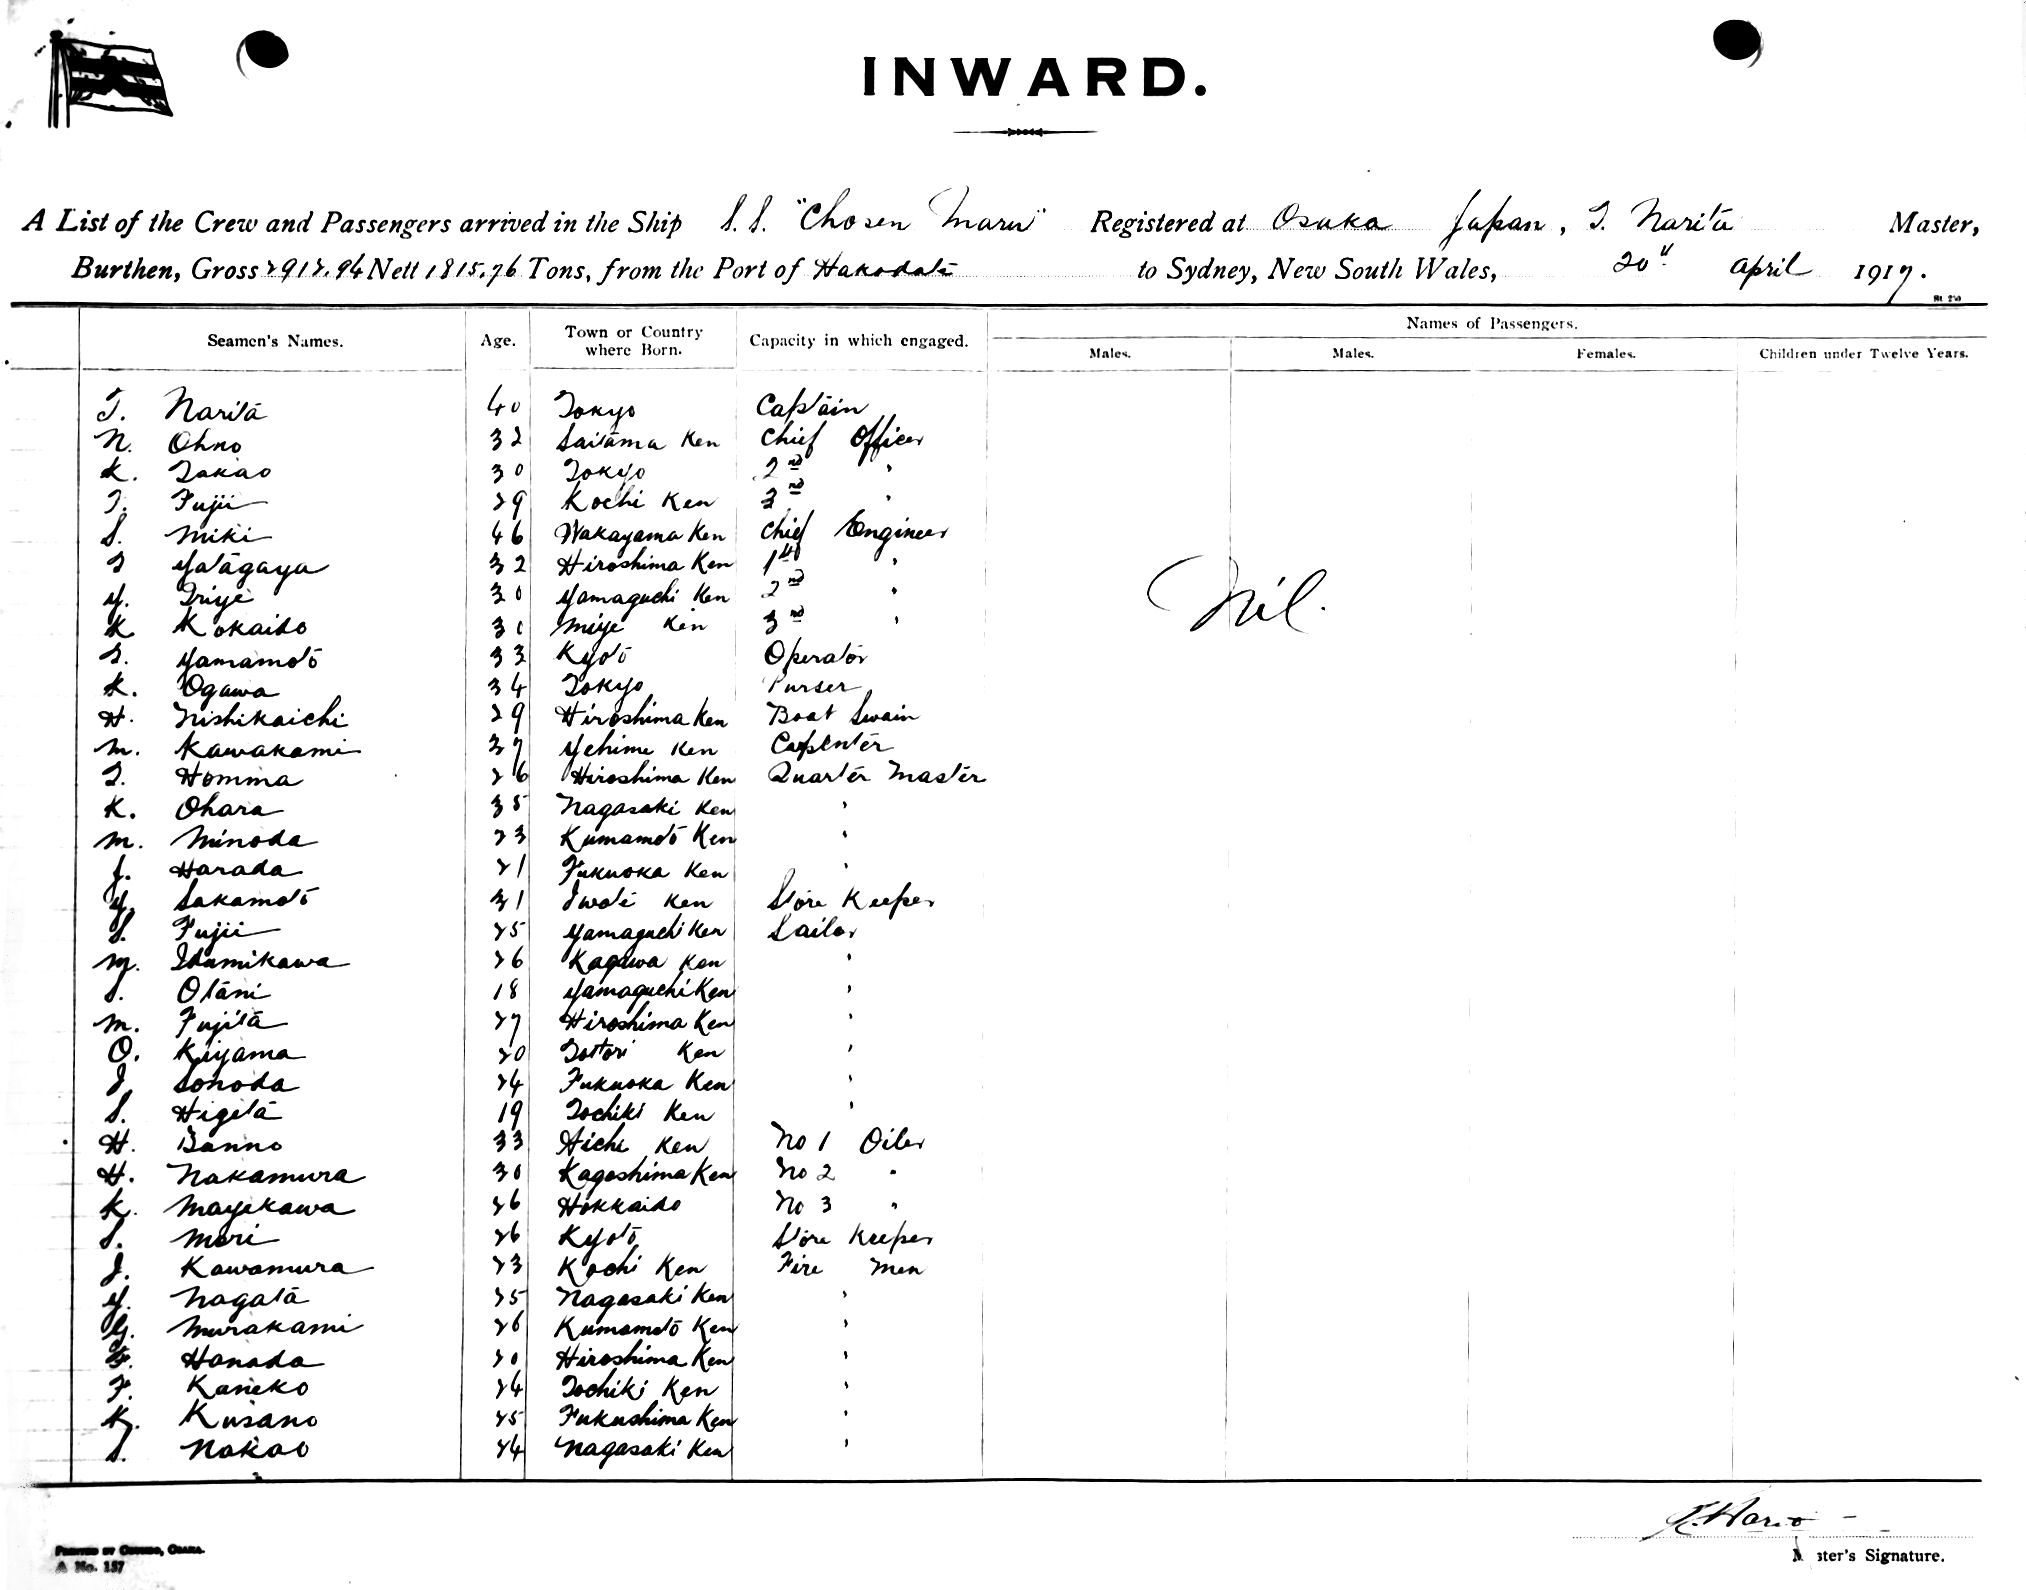 INWARD.
A List of the Crew and Passengers arrived in the Ship S.S. "Chosen Maru" Registered at Osaka Japan, T. Narita Master,
Burthen, Gross 2912.94 Nett 1815.76 Tons, from the Port of Hakodate to Sydney, New South Wales, 20th April 1917.
Names of Passengers.
Seamen's Names. Age. Town or Country where Born. Capacity in which engaged. Males. Males. Females. Children under Twelve Years.
T. Narita 40 Tokyo Captain
N. Ohno 32 Saitama Ken Chief Officer
K. Takao 30 Tokyo 2nd "
T. Fujii 29 Kochi Ken 3rd "
S. Miki 46 Wakayama Ken Chief Engineer
T Yatagaya 32 Hiroshima Ken 1st "
Y. Iriye 30 Yamaguchi Ken 2nd "
Nil.
K Kokaido 30 Miye Ken 3rd "
T. Yamamoto 33 Kyoto Operator
K. Ogawa 34 Tokyo Purser
H. Nishikaichi 29 Hiroshima Ken Boat Swain
M. Kawakami 37 Yehime Ken Carpenter
T. Homma 26 Hiroshima Ken Quarter Master
K. Ohara 35 Nagasaki Ken "
M. Minoda 23 Kumamoto Ken "
J. Harada 21 Fukuoka Ken "
Y. Sakamoto 31 Iwate Ken Store Keeper
S. Fujii 25 Yamaguchi Ken Sailor
M. Idumikawa 26 Kagawa Ken "
S. Otani 18 Yamaguchi Ken "
M. Fujita 27 Hiroshima Ken "
O. Kiyama 20 Tottori Ken "
J. Sonoda 24 Fukuoka Ken "
S. Higeta 19 Tochiki Ken "
H. Banno 33 Aichi Ken No 1 Oiler
H. Nakamura 30 Kagoshima Ken No 2 "
K. Mayekawa 26 Hokkaido No 3 "
S. Mori 26 Kyoto Store Keeper
J. Kawamura 23 Kochi Ken Fire Men
Y. Nagata 25 Nagasaki Ken "
G. Murakami 26 Kumamoto Ken "
Hanada 20 Hiroshima Ken "
F. Kaneko 24 Tochiki Ken "
K. Kusano 25 Fukushima Ken "
S. Nakao 24 Nagasaki Ken "
Master's Signature.
A No. 157